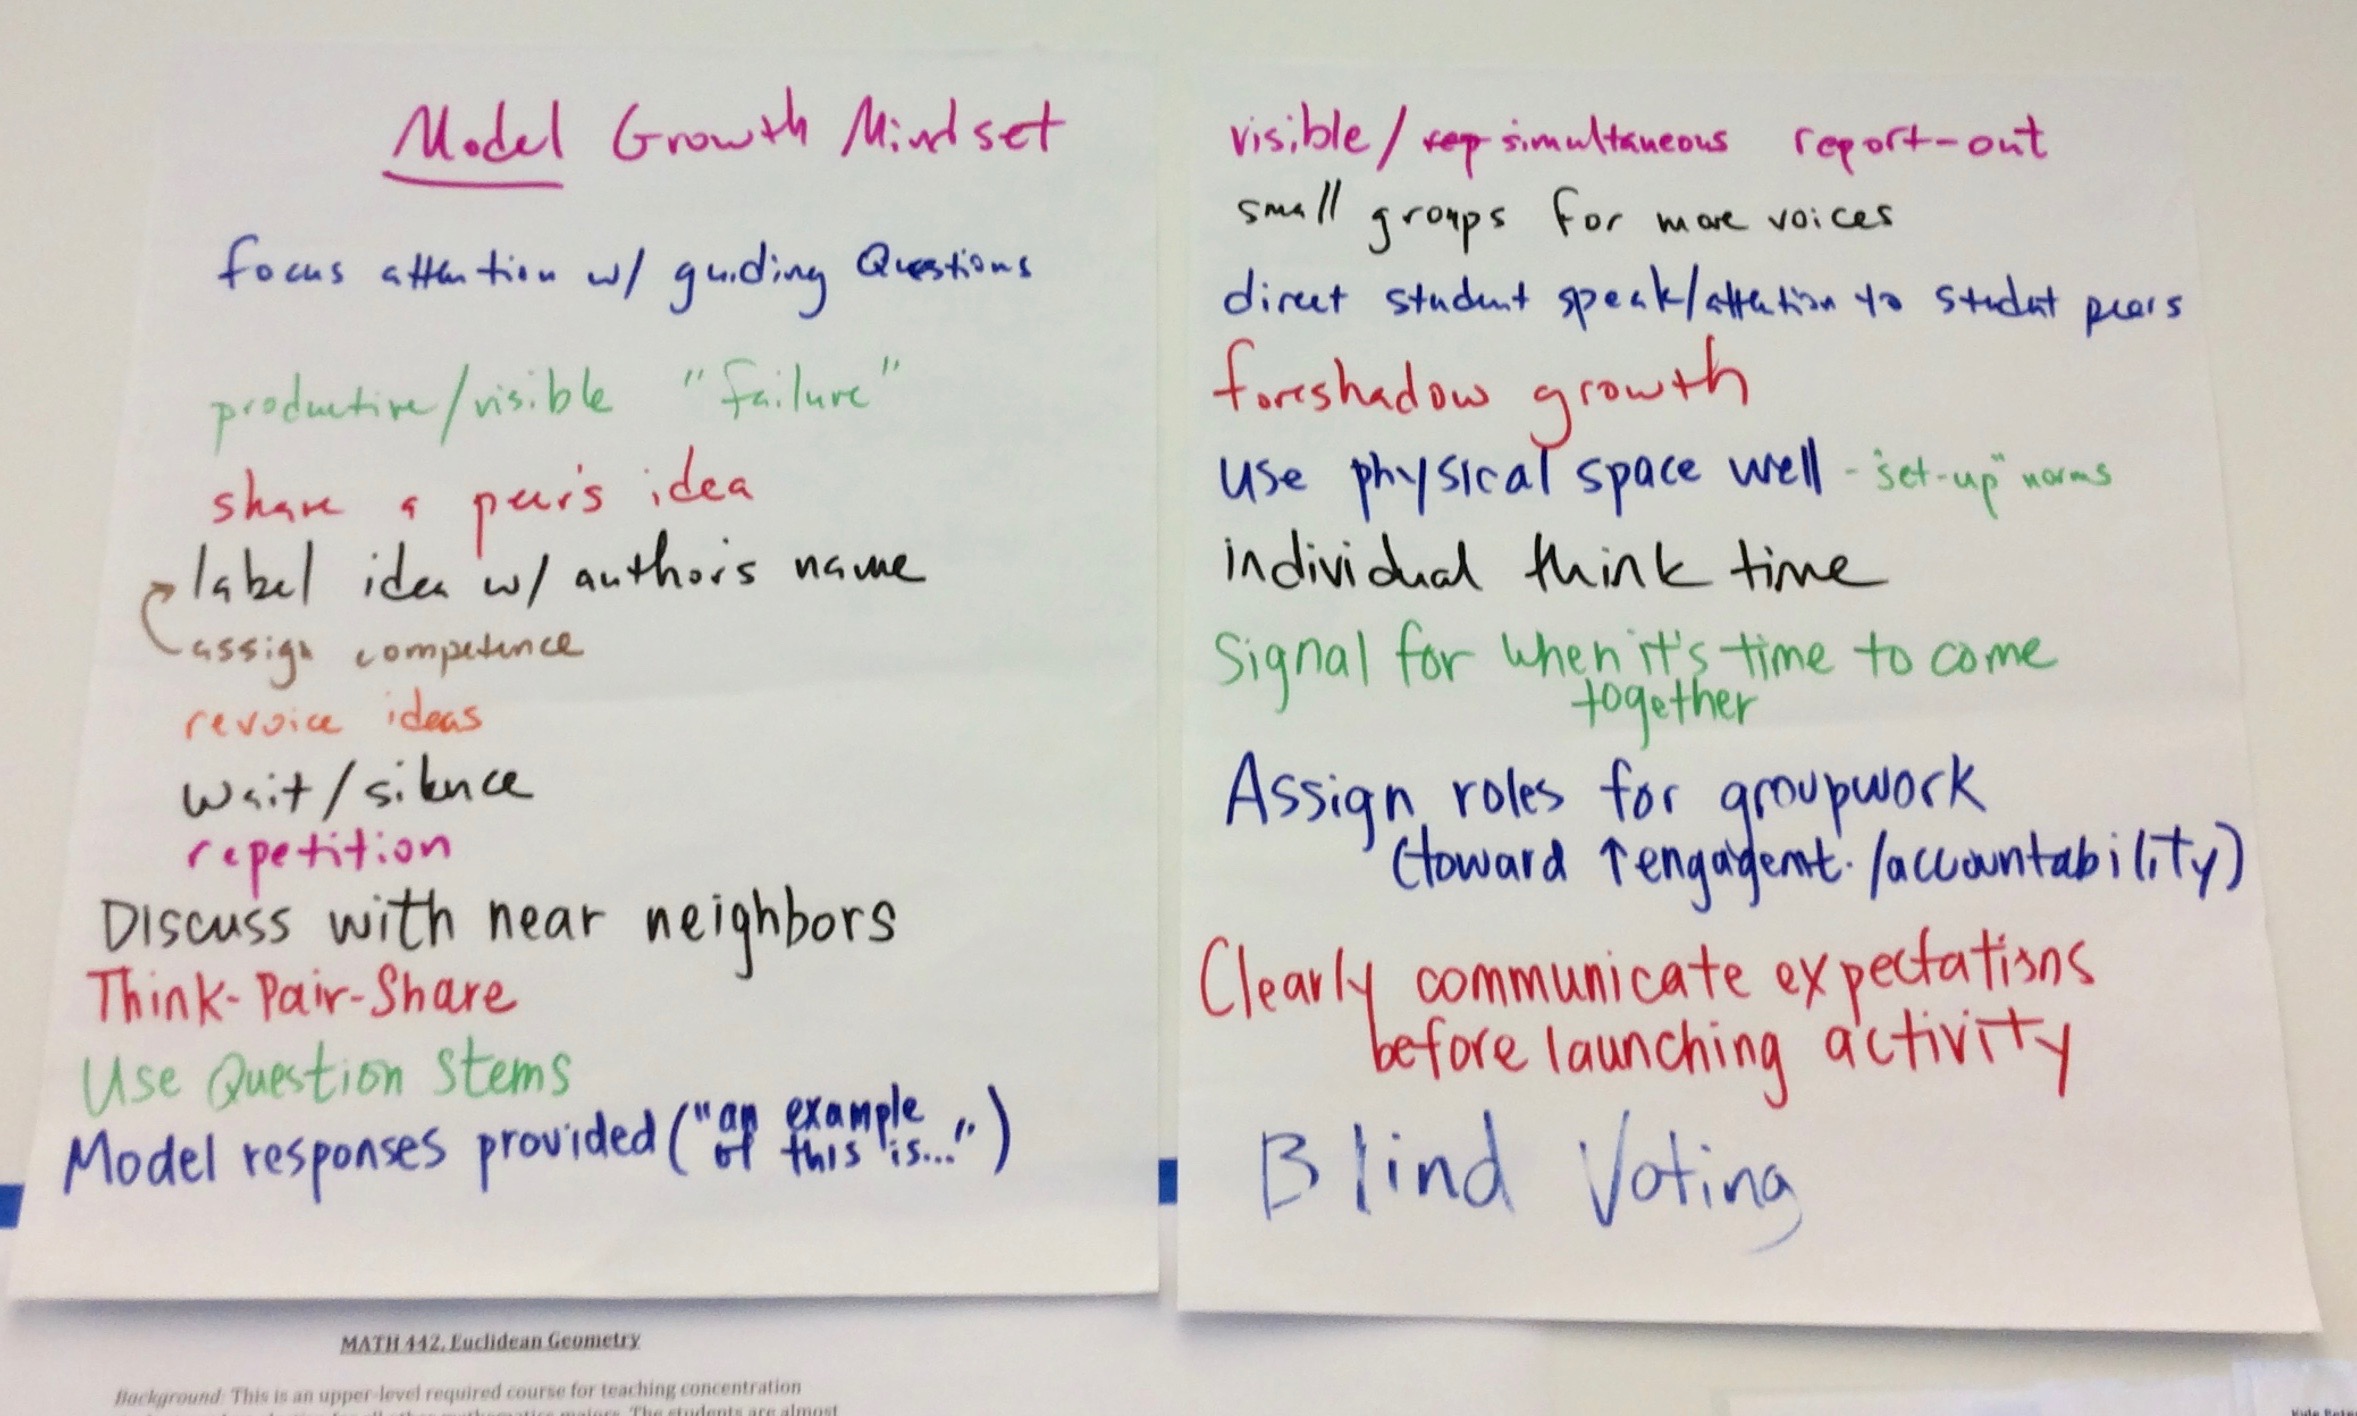 Model Growth Mindset
focus attention w/ guiding Questions
productive/visible "failure"
share a peer's idea
label idea w/ author's name
assign competence
revoice ideas
wait/silence
repetition
Discuss with near neighbors
Think-Pair-Share
Use Question Stems
Model responses provided ("an example
of this is...")
visible/rep simultaneous report-out
small groups for more voices
direct student speak/attention to student peers
foreshadow growth
Use physical space well - "set-up" norms
individual think time
Signal for when it's time to come
together
Assign roles for groupwork
(toward ↑engagemt./accountability)
Clearly communicate expectations
before launching activity
Blind Voting
MATH 442, Euclidean Geometry
Background: This is an upper-level required course for teaching concentration
mathematics majors. The students are almost
Kyle